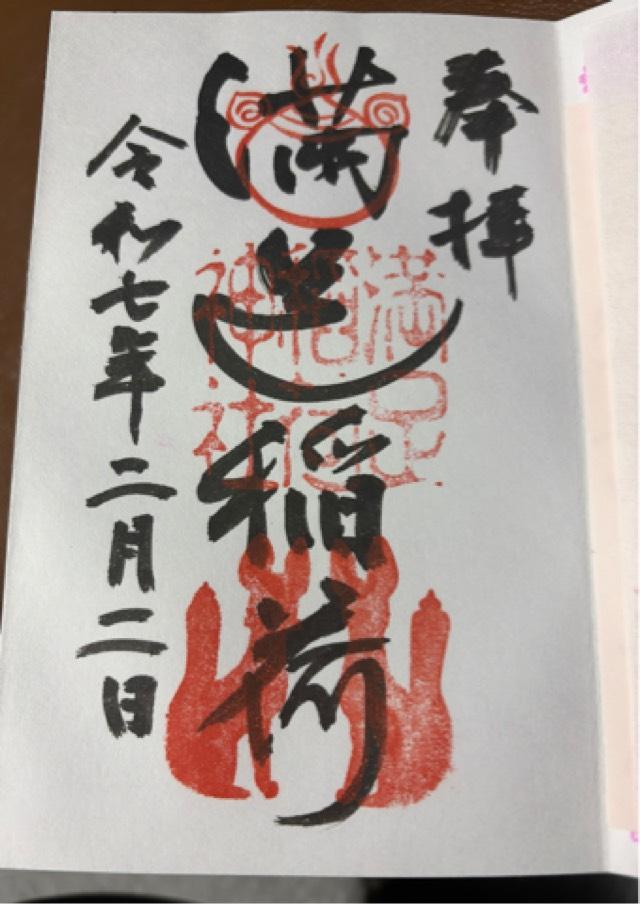 奉拝
満足稲荷
満足
稲荷
神社
令和七年二月二日